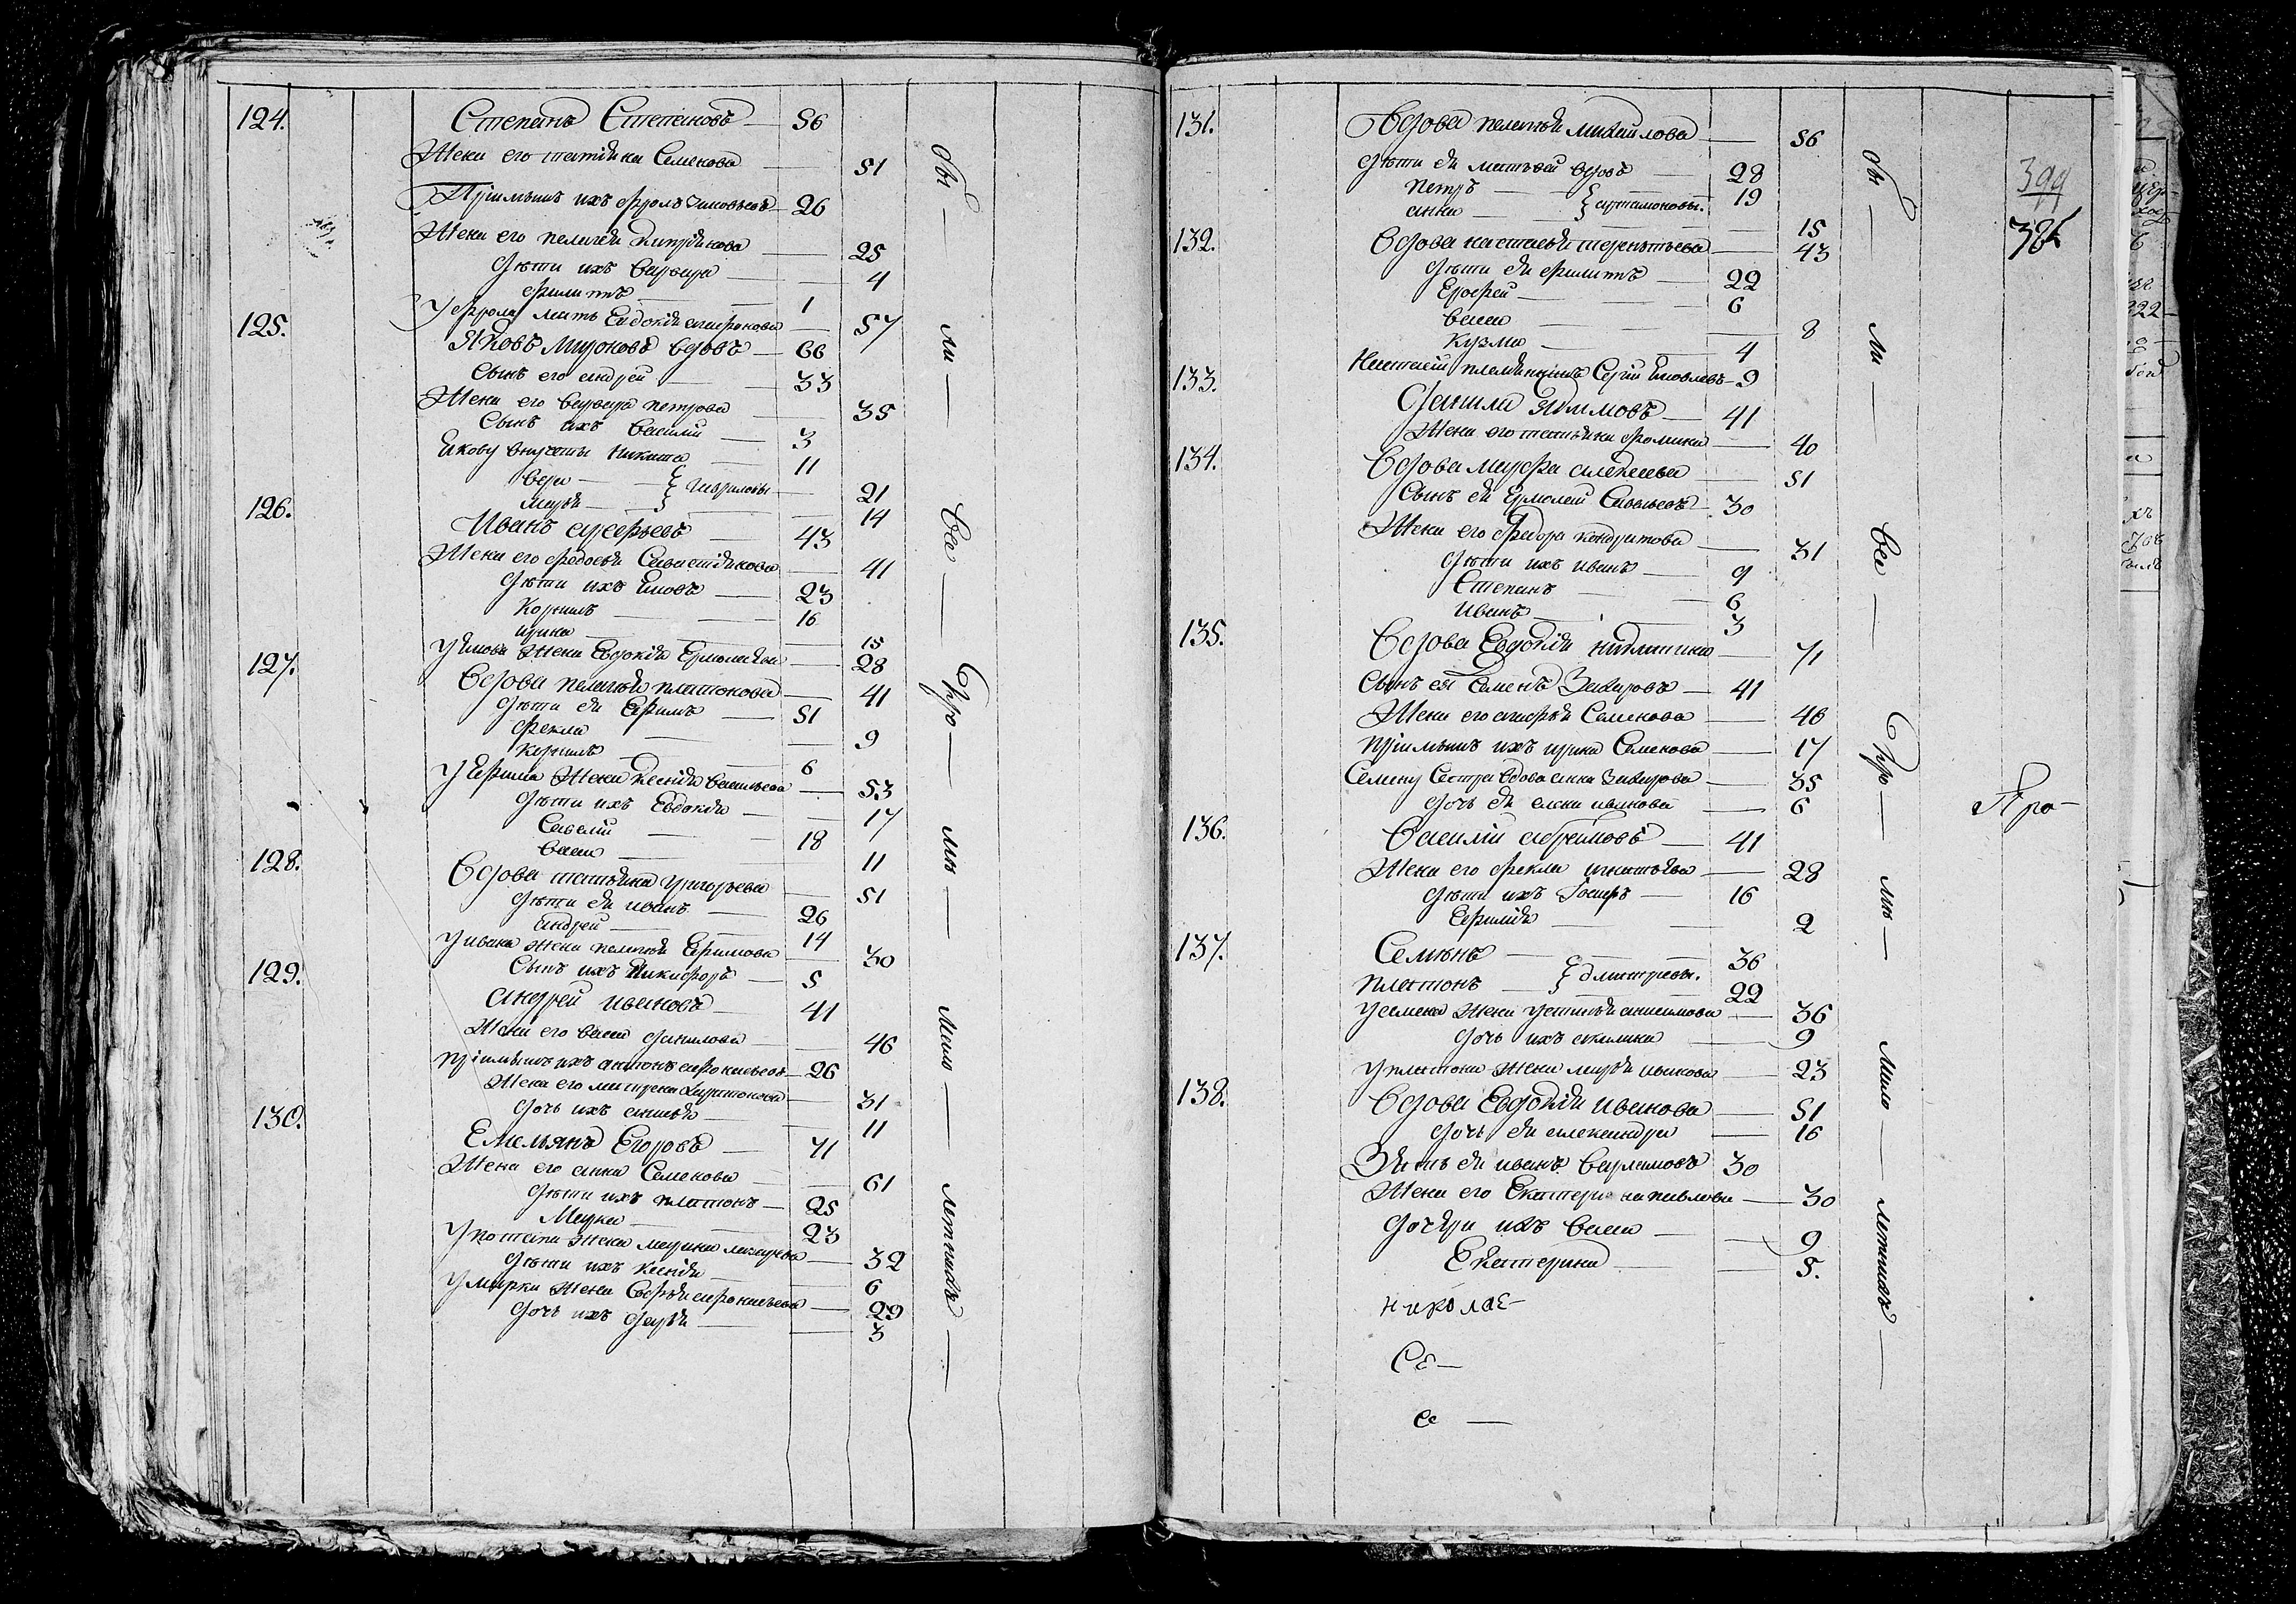 124. Степанъ Степановъ — 56
Жена его татіяна Семенова — 51
Пріимышъ ихъ фролъ Яковлевъ — 26
Жена его пелагея Кипріянова — 25
Дѣти ихъ варвара — 4
филиппъ — 1
У фрола мать Евдокія агафонова — 57
125. Яковъ Мироновъ вдовъ — 66
Сынъ его андрей — 33
Жена его варвара петрова — 35
Сынъ ихъ василій — 3
Якову внучаты никита — 11
вера — гавриловы — 21
марья — 14
126. Иванъ арефьевъ — 43
Жена его федосья Савастіянова — 41
Дѣти ихъ Яковъ — 23
Корнилъ — 16
ирина — 15
У Якова жена Евдокія Ермолаева — 28
127. Вдова пелагея платонова — 41
Дѣти ея Ефимъ — 51
фекла — 9
Корнилъ — 6
У Ефима жена ксенія васильева — 53
Дѣти ихъ Евдокія — 17
Савелій — 18
васса — 11
128. Вдова татьяна григорьева — 51
Дѣти ея иванъ — 26
андрей — 14
У ивана жена пелагея Ефимова — 30
Сынъ ихъ Никифоръ — 5
129. Андрей ивановъ — 41
Жена его васса данилова — 46
пріимышъ ихъ антонъ афонасьевъ — 26
Жена его матрена Харитонова — 31
Дочь ихъ анисья — 11
130. Емельянъ Егоровъ — 71
Жена его анна Семенова — 61
Дѣти ихъ платонъ — 25
Марка — 23
У платона жена марина — 32
Дѣти ихъ ксенія — 6
У марки жена Софья афонасьева — 29
Дочь ихъ Дарья — 3
Объ — ли — все — Про — мѣ — мело — летнихъ —
399
386
131. Вдова пелагея михайлова — 56
Дѣти ея матвей вдовъ — 28
петръ — артамоновы. — 19
анна — 15
132. Вдова настасья терентьева — 43
Дѣти ея филиппъ — 22
Ерофей — 6
васса — 8
кузма — 4
Настасьи племянникъ Сергій Яковлевъ — 9
133. Данила Якимовъ — 41
Жена его татьяна фомина — 40
134. Вдова марфа алексеева — 51
Сынъ ея Ермолай Савельевъ — 30
Жена его федора кондратова — 31
Дѣти ихъ иванъ — 9
Степанъ — 6
иванъ — 3
135. Вдова Евдокія никитина — 71
Сынъ ея Семенъ Захаровъ — 41
Жена его агафья Семенова — 46
пріимышъ ихъ ирина Семенова — 17
Семену Сестра вдова анна Захарова — 35
дочь ея елена иванова — 6
136. Василій абрамовъ — 41
Жена его фекла игнатьева — 28
Дѣти ихъ Іосифъ — 16
Ефимія — 2
137. Семенъ — 36
Платонъ — дмитріевы. — 22
У семена жена устинья анисимова — 36
Дочь ихъ акилина — 9
У платона жена марья иванова — 23
138. Вдова Евдокія иванова — 51
Дочь ея александра — 16
Зять ея иванъ варламовъ 30
Жена его Екатерина павлова — 30
Дочери ихъ васса — 9
Екатерина — 5.
николае-
Се —
се —
Объ — ли — все — Про — мѣ — мело — летнихъ —
Про-